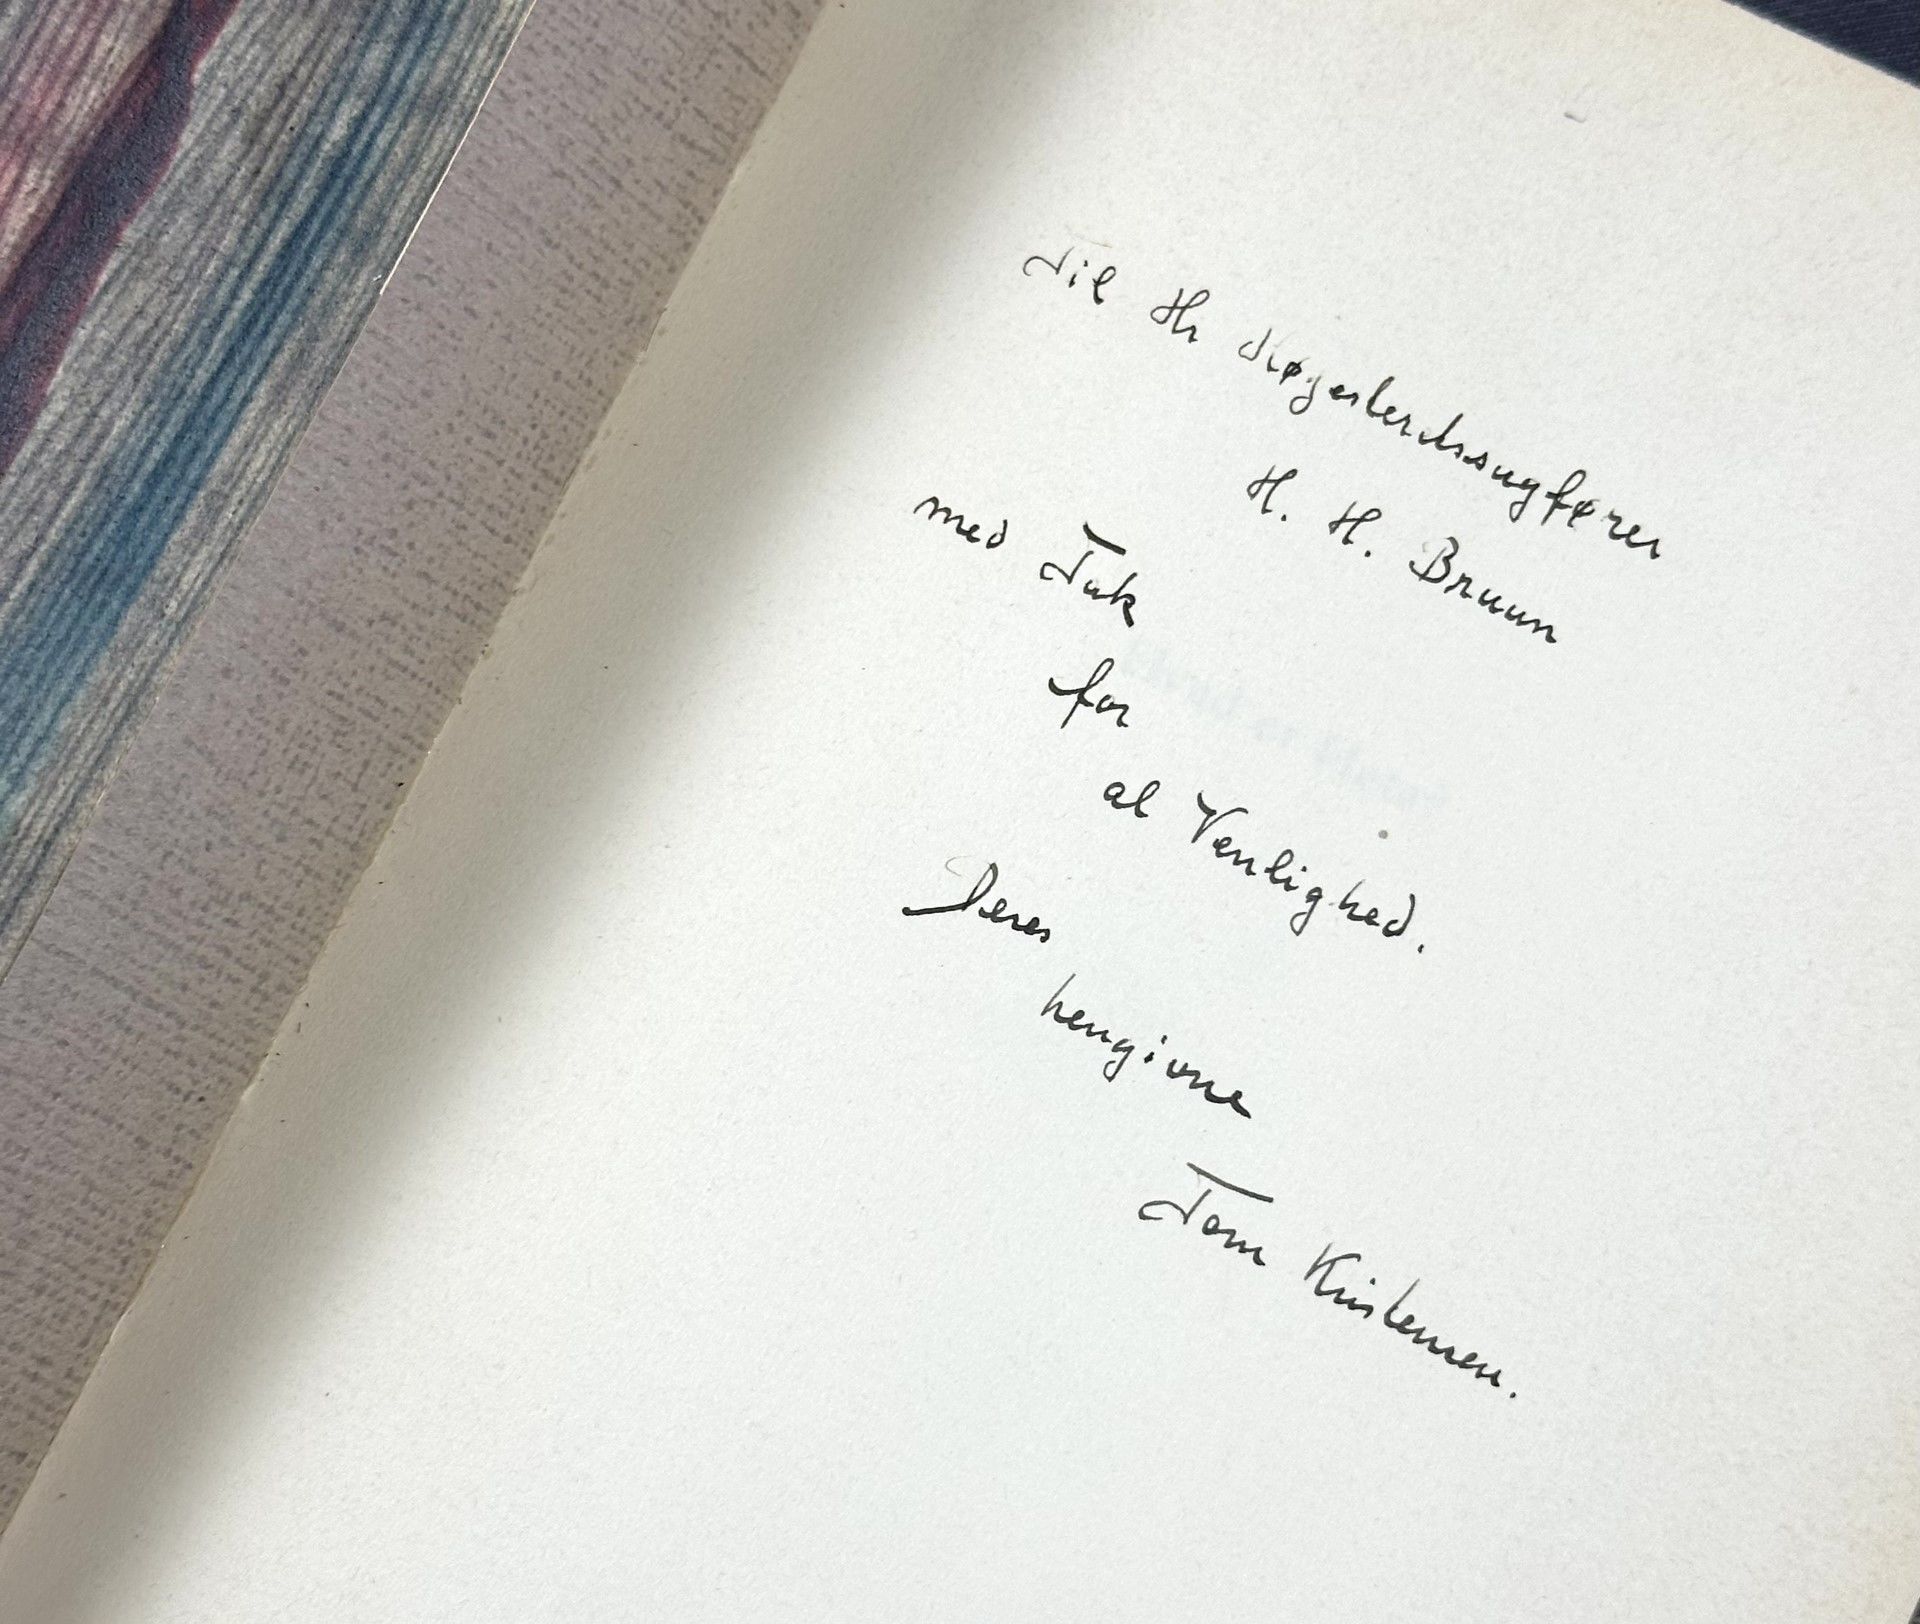 Til Hr Højesteretssagfører
H. H. Bruun
med Tak
for
al Venlighed.
Deres
hengivne
Tom Kristensen.